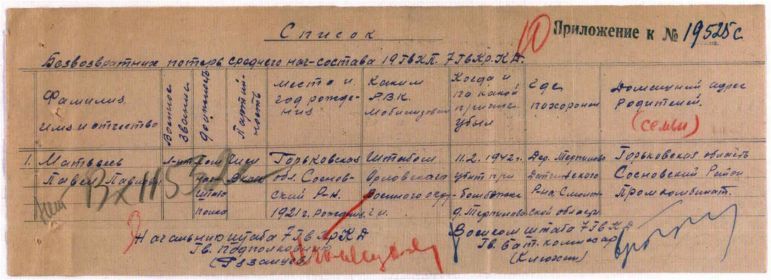 Список
Приложение к № 19525с
Безвозвратных потерь среднего нач-состава 19 ГвКП 7 ГвКр.К.Д.
Фамилия
имя и отчество
Военное звание
Должность
Партийность
Место и
год рожде-
ния
Каким
Р.В.К.
Мобилизован
Когда и
по какой
причине
убыл
Где
похоронен
Домашний адрес
родителей.
(семьи)
1. Матвеев
Павел Павлович
Л-нт
Пом
нач
штаба
полка
Горьковская
обл. Соснов-
ский Р-н.
1921 г. рождения
Штабом
Орловского
Военного окр.
11.2.1942 г.
убит при
бомбежке
Дер.
Р-на Смолен
области
Горьковская область
Сосновский Район
Промкомбинат.
Вх 1155
Начальник штаба 7 ГвКрКД
Гв. подполковник
Военком штаба 7 ГвКД
Гв. бат. комиссар